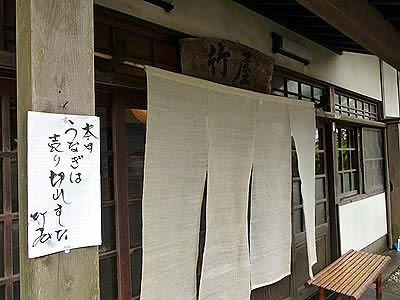 竹屋
本日
うなぎは
売り切れました
竹屋